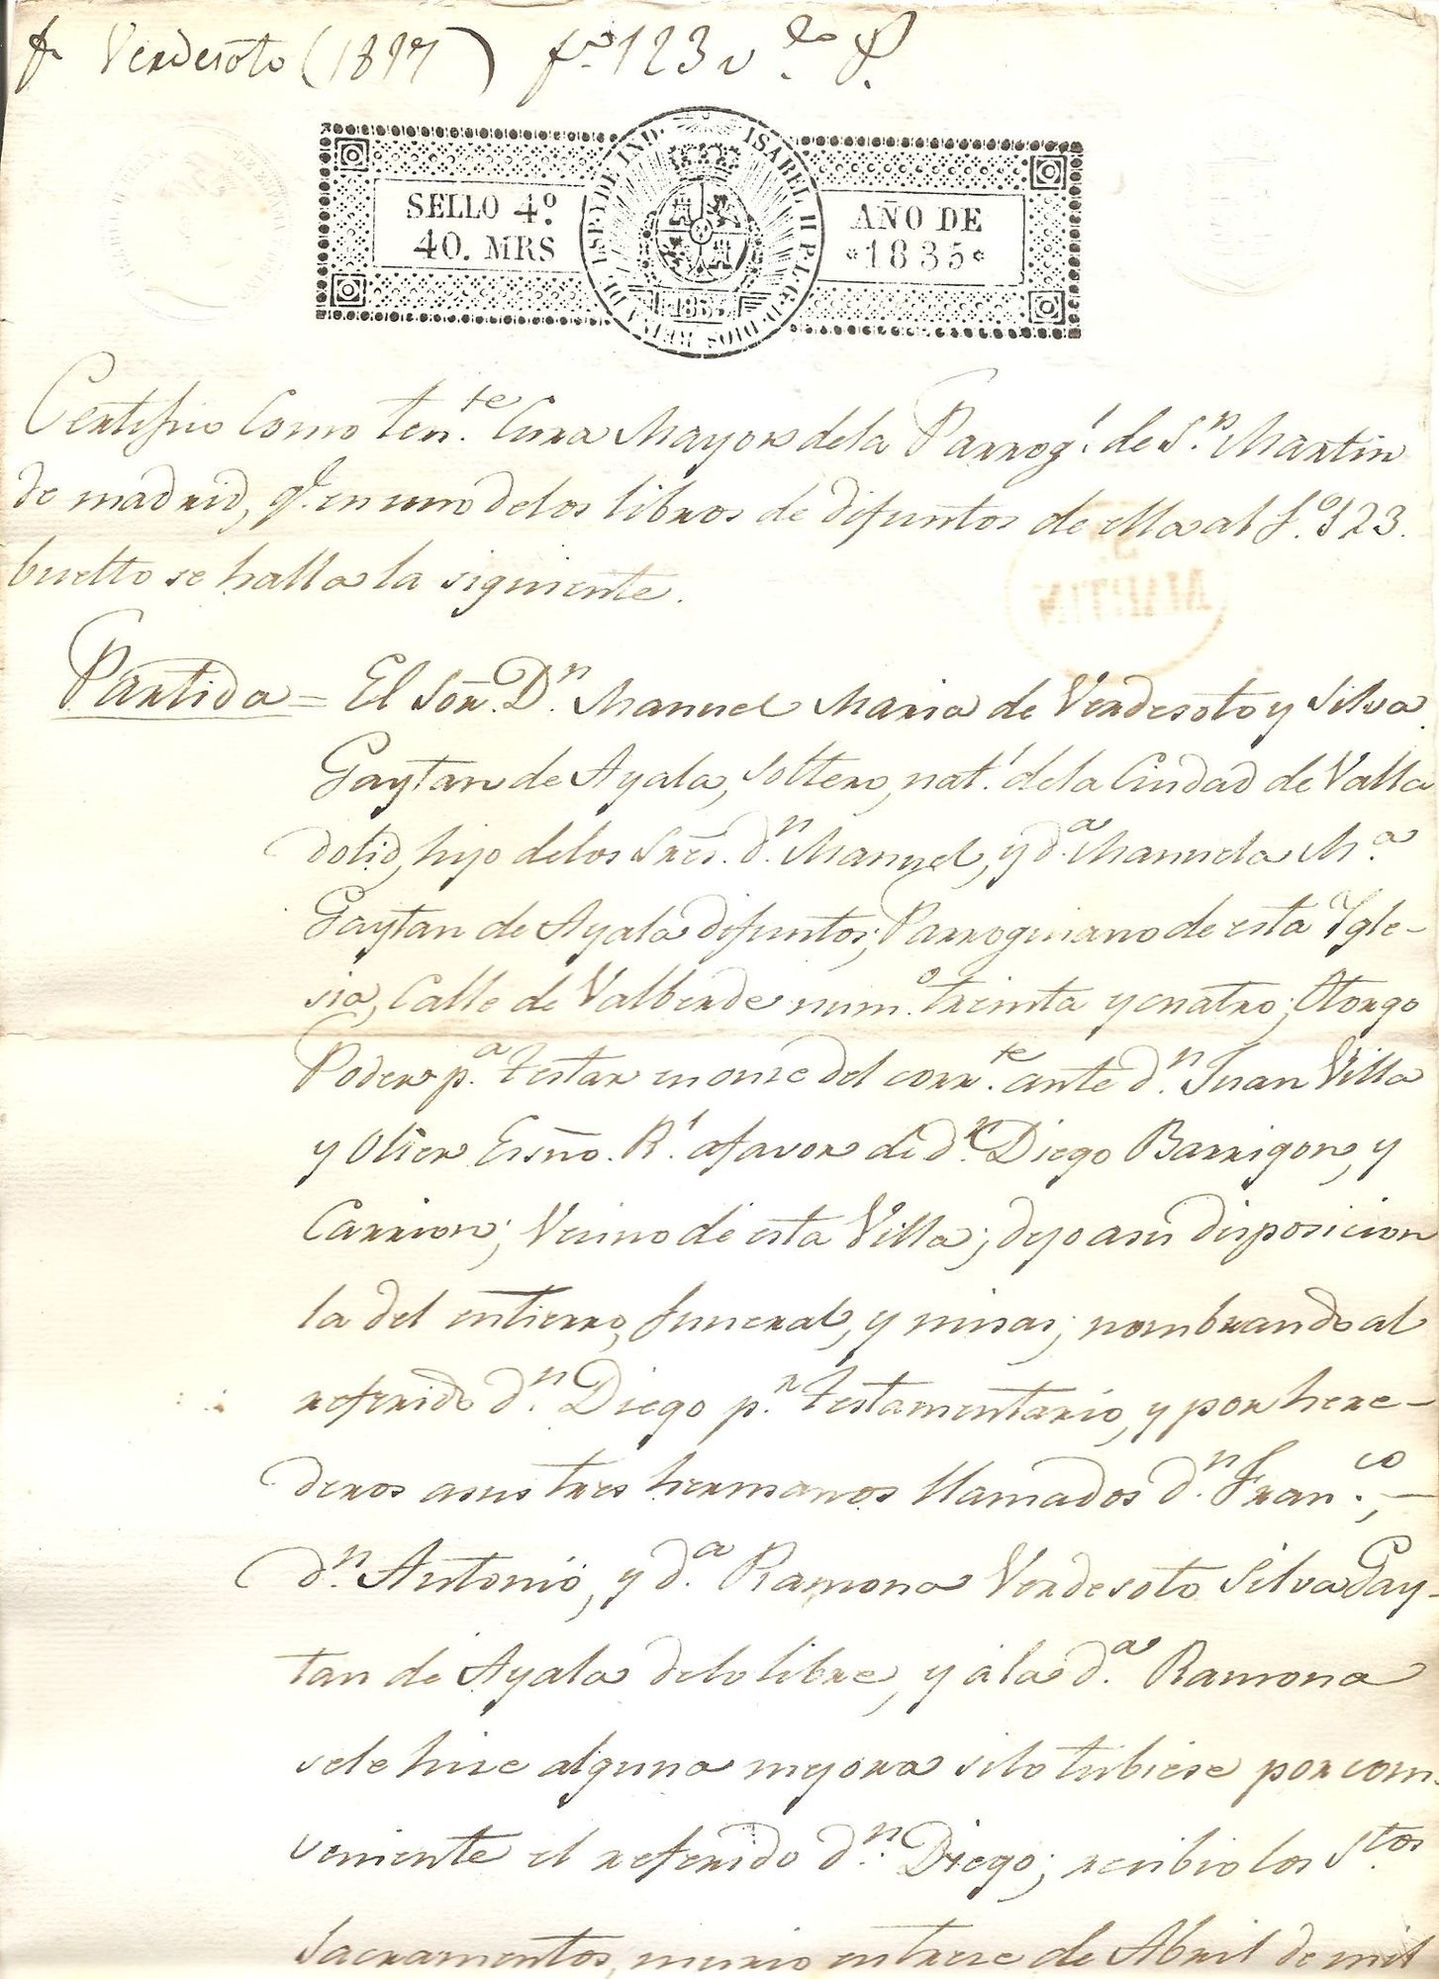 Verdesoto (1817) fº 123 vto P.
SELLO 4º
40. MRS
ISABEL II P. L. G. D. DIOS REINA DE ESP. Y DE IND.
1835
AÑO DE
*1835*
Certifico como ten.te Cura Mayor dela Parroq.l de S.n Martin
de madrid, q.e en uno delos libros de difuntos de ella al f.º 123.
buelto se halla la siguiente.
S.
MARTIN
Partida = El Sor. D.n Manuel Maria de Verdesoto y Silva
Gaytan de Ayala, soltero, nat.l dela Ciudad de Valla
dolid, hijo delos Sres. d.n Manuel, y d.a Manuela M.a
Gaytan de Ayala difuntos; Parroquiano de esta Ygle-
sia, Calle de Valberde num.o treinta y cuatro; Otorgo
Poder p.a testar en once del corr.te ante d.n Juan Villa
y Olier Essno. R.l afavor de d.n Diego Barrigon, y
Carrion; Vecino de esta Villa; dejo asu disposicion
la del entierro, funeral, y misas; nombrando al
referido d.n Diego p.r testamentario, y por here-
deros asus tres hermanos llamados d.n Fran.co, -
d.n Antonio, y d.a Ramona Verdesoto Silva Gay-
tan de Ayala delo libre, y ala d.a Ramona
sele hice alguna mejora silo tubiese por com-
veniente el referido d.n Diego; recibio los S.tos
Sacramentos, murio en trece de Abril de mil